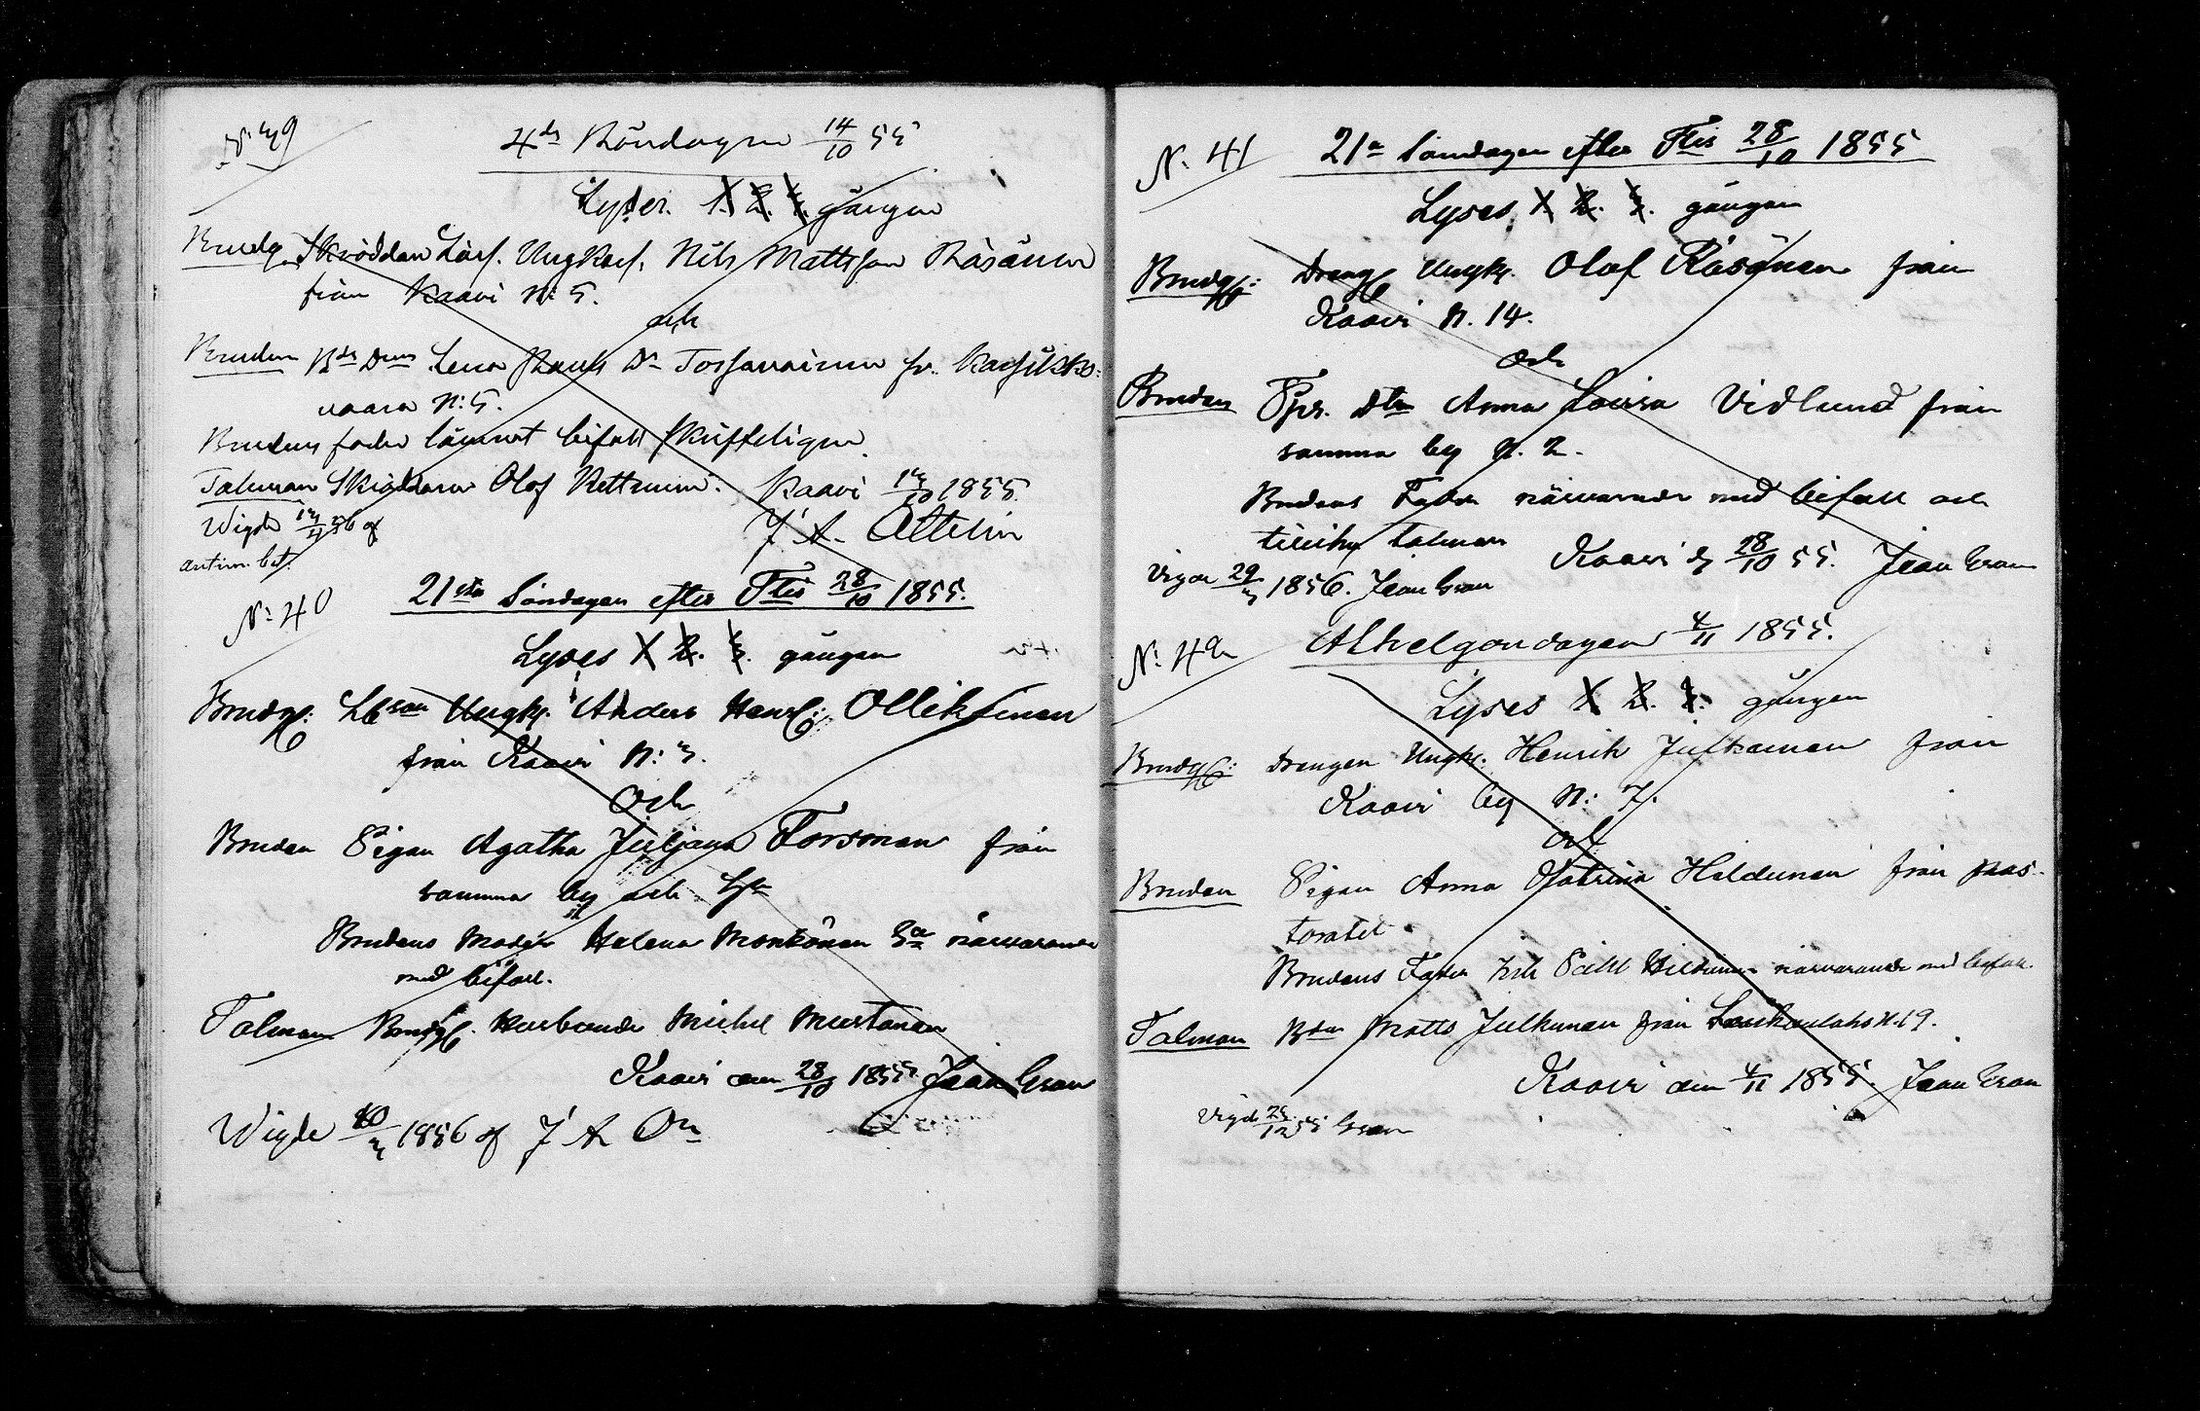 N: 39
4de Böndagen 14/10 55
Lyser. 1. 2. 3. gången
Brudg. Skräddar Lärl. Ungkarl. Nils Mattsson Räsänen
från Kaavi N: 5.
och
Bruden Bde Dtter Lena Dr Tossavainen fr.
vaara N: 5.
Brudens fader lämnat bifall skriftligen
Talman Skräddaren Olof Kettunen. Kaavi 14/10 1855.
J A
Wigde
antim. bet.
N: 40
21sta Söndagen efter Tris 28/10 1855.
Lyses 1. 2. 3. gången
Brudg: Ungk. Anders Henr: Ollikainen
från Kaavi N: 3.
Och
Bruden Pigan Agatha Juljana Forsman från
samma by och
Brudens Moder Helena Monkönen närvarande
med bifall.
Talman Brudg. Husbonde Michel Mustonen
Kaavi den 28/10 1855. Jean Gran
Wigde 10/3 1856 af J A On
N. 41
21a Söndagen efter Tris 28/10 1855
Lyses 1. 2. 3. gången
Brudg: Dreng Ungk. Olof Räsänen från
Kaavi N. 14.
och
Bruden Pps. Dtn Anna Lovisa Vidlund från
samma by N. 2.
Brudens Fader närvarande med bifall och
tillika talman
Kaavi d 28/10 55. Jean Gran
Vigde 29/3 1856. Jean Gran
N: 42
Alhelgondagen 4/11 1855.
Lyses 1. 2. 3. gången
Brudg: Drengen Ungk. Henrik Julkunen från
Kaavi by N: 7.
och
Bruden Pigan Anna Catrina Hildunen från pas-
toratet
Brudens Fader Påhl Hildunen närvarande med bifall.
Talman Bdn Matts Julkunen från N. 19.
Kaavi den 4/11 1855. Jean Gran
Vigde 26/12 55 Gran